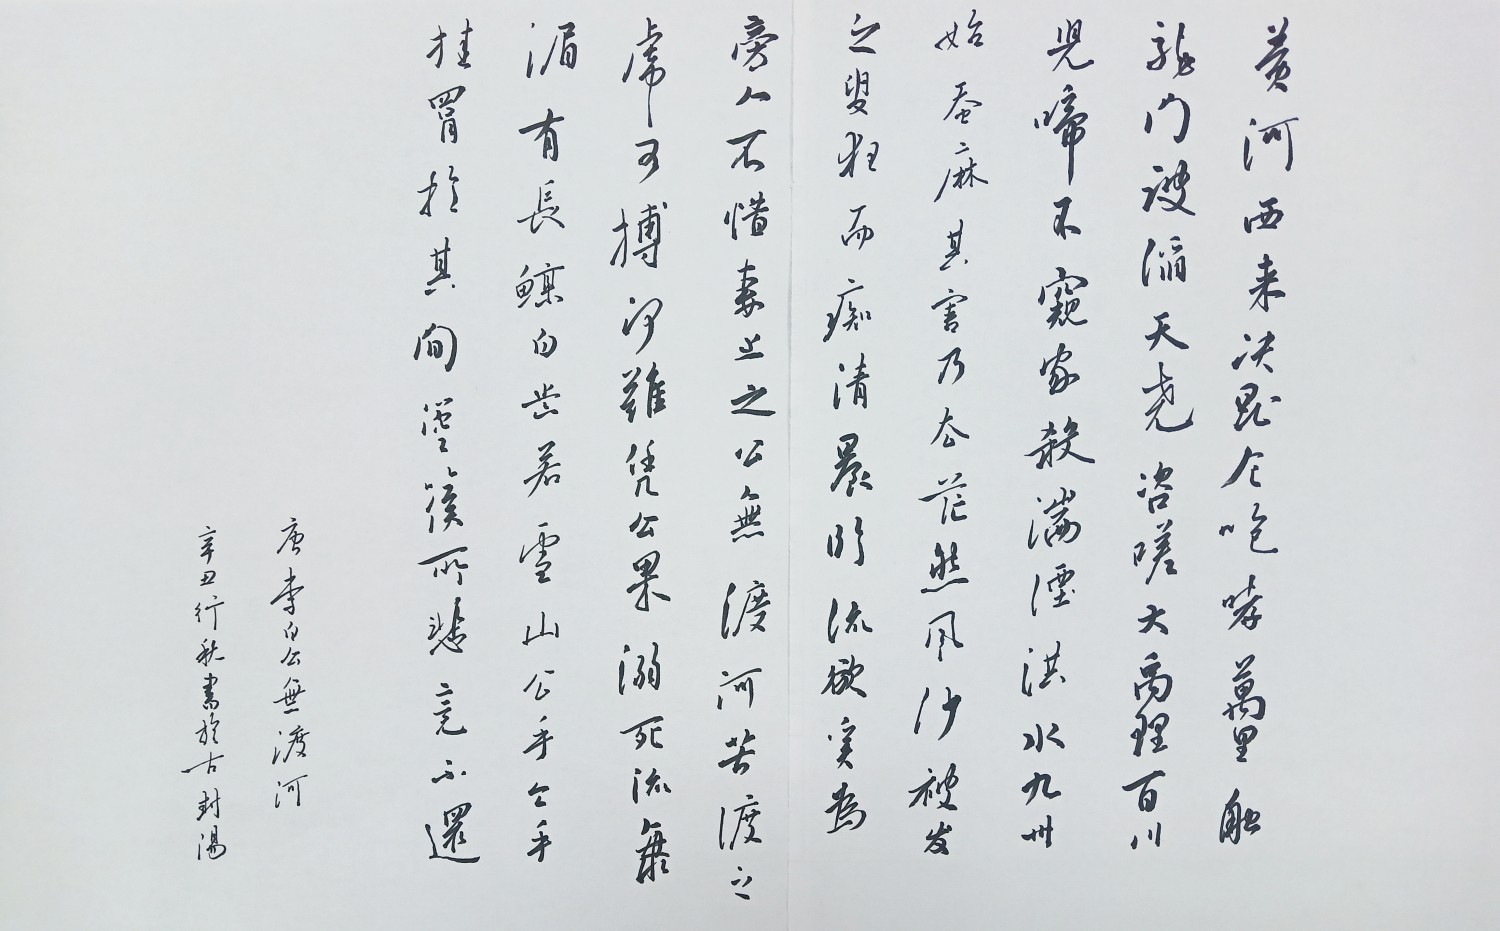 黄河西来决昆仑咆哮萬里触
龍门波滔天尧咨嗟大禹理百川
児啼不窺家殺湍湮洪水九州
始蚕麻其害乃去茫然风沙被发
之叟狂而痴清晨临流欲奚為
旁人不惜妻止之公無渡河苦渡之
虎可搏河難凭公果溺死流海
湄有長鯨白齿若雪山公乎公乎
挂罥於其间箜篌所悲竟不還
唐李白公無渡河
辛丑行秋書於古封